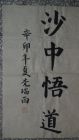 沙中悟道
辛卯年夏